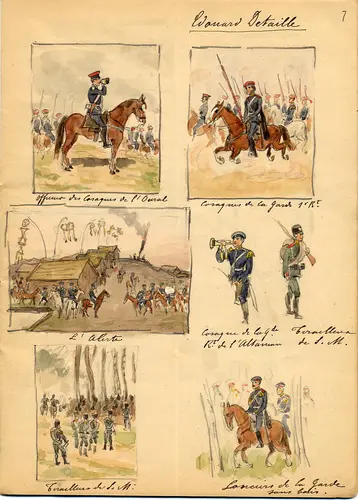 Edouard Detaille
7
Officier des Cosaques de l'Oural
Cosaques de la Garde 1r Rt.
L'Alerte
Cosaque de la Gde
Rt. de l'Ataman
Tirailleurs
de S. M.
Tirailleurs de S. M.
Lanciers de la Garde
sans colis.